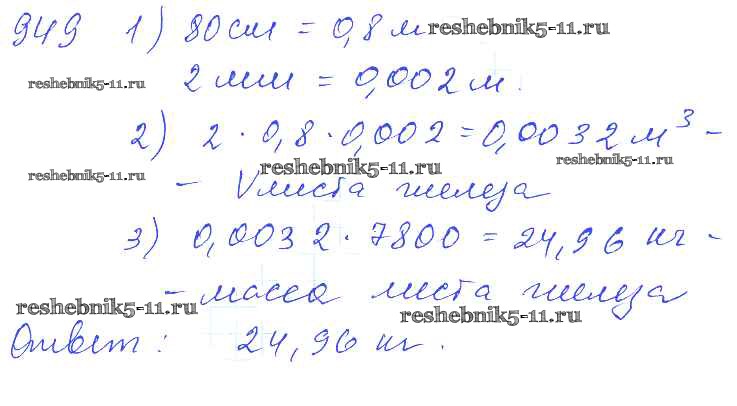 949 1) 80 см = 0,8 м reshebnik5-11.ru
reshebnik5-11.ru 2 мм = 0,002 м.
2) 2 · 0,8 · 0,002 = 0,0032 м³ -
reshebnik5-11.ru reshebnik5-11.ru reshebnik5-11.ru
- V листа железа
3) 0,0032 · 7800 = 24,96 кг -
- масса листа железа
reshebnik5-11.ru reshebnik5-11.ru
Ответ: 24,96 кг.